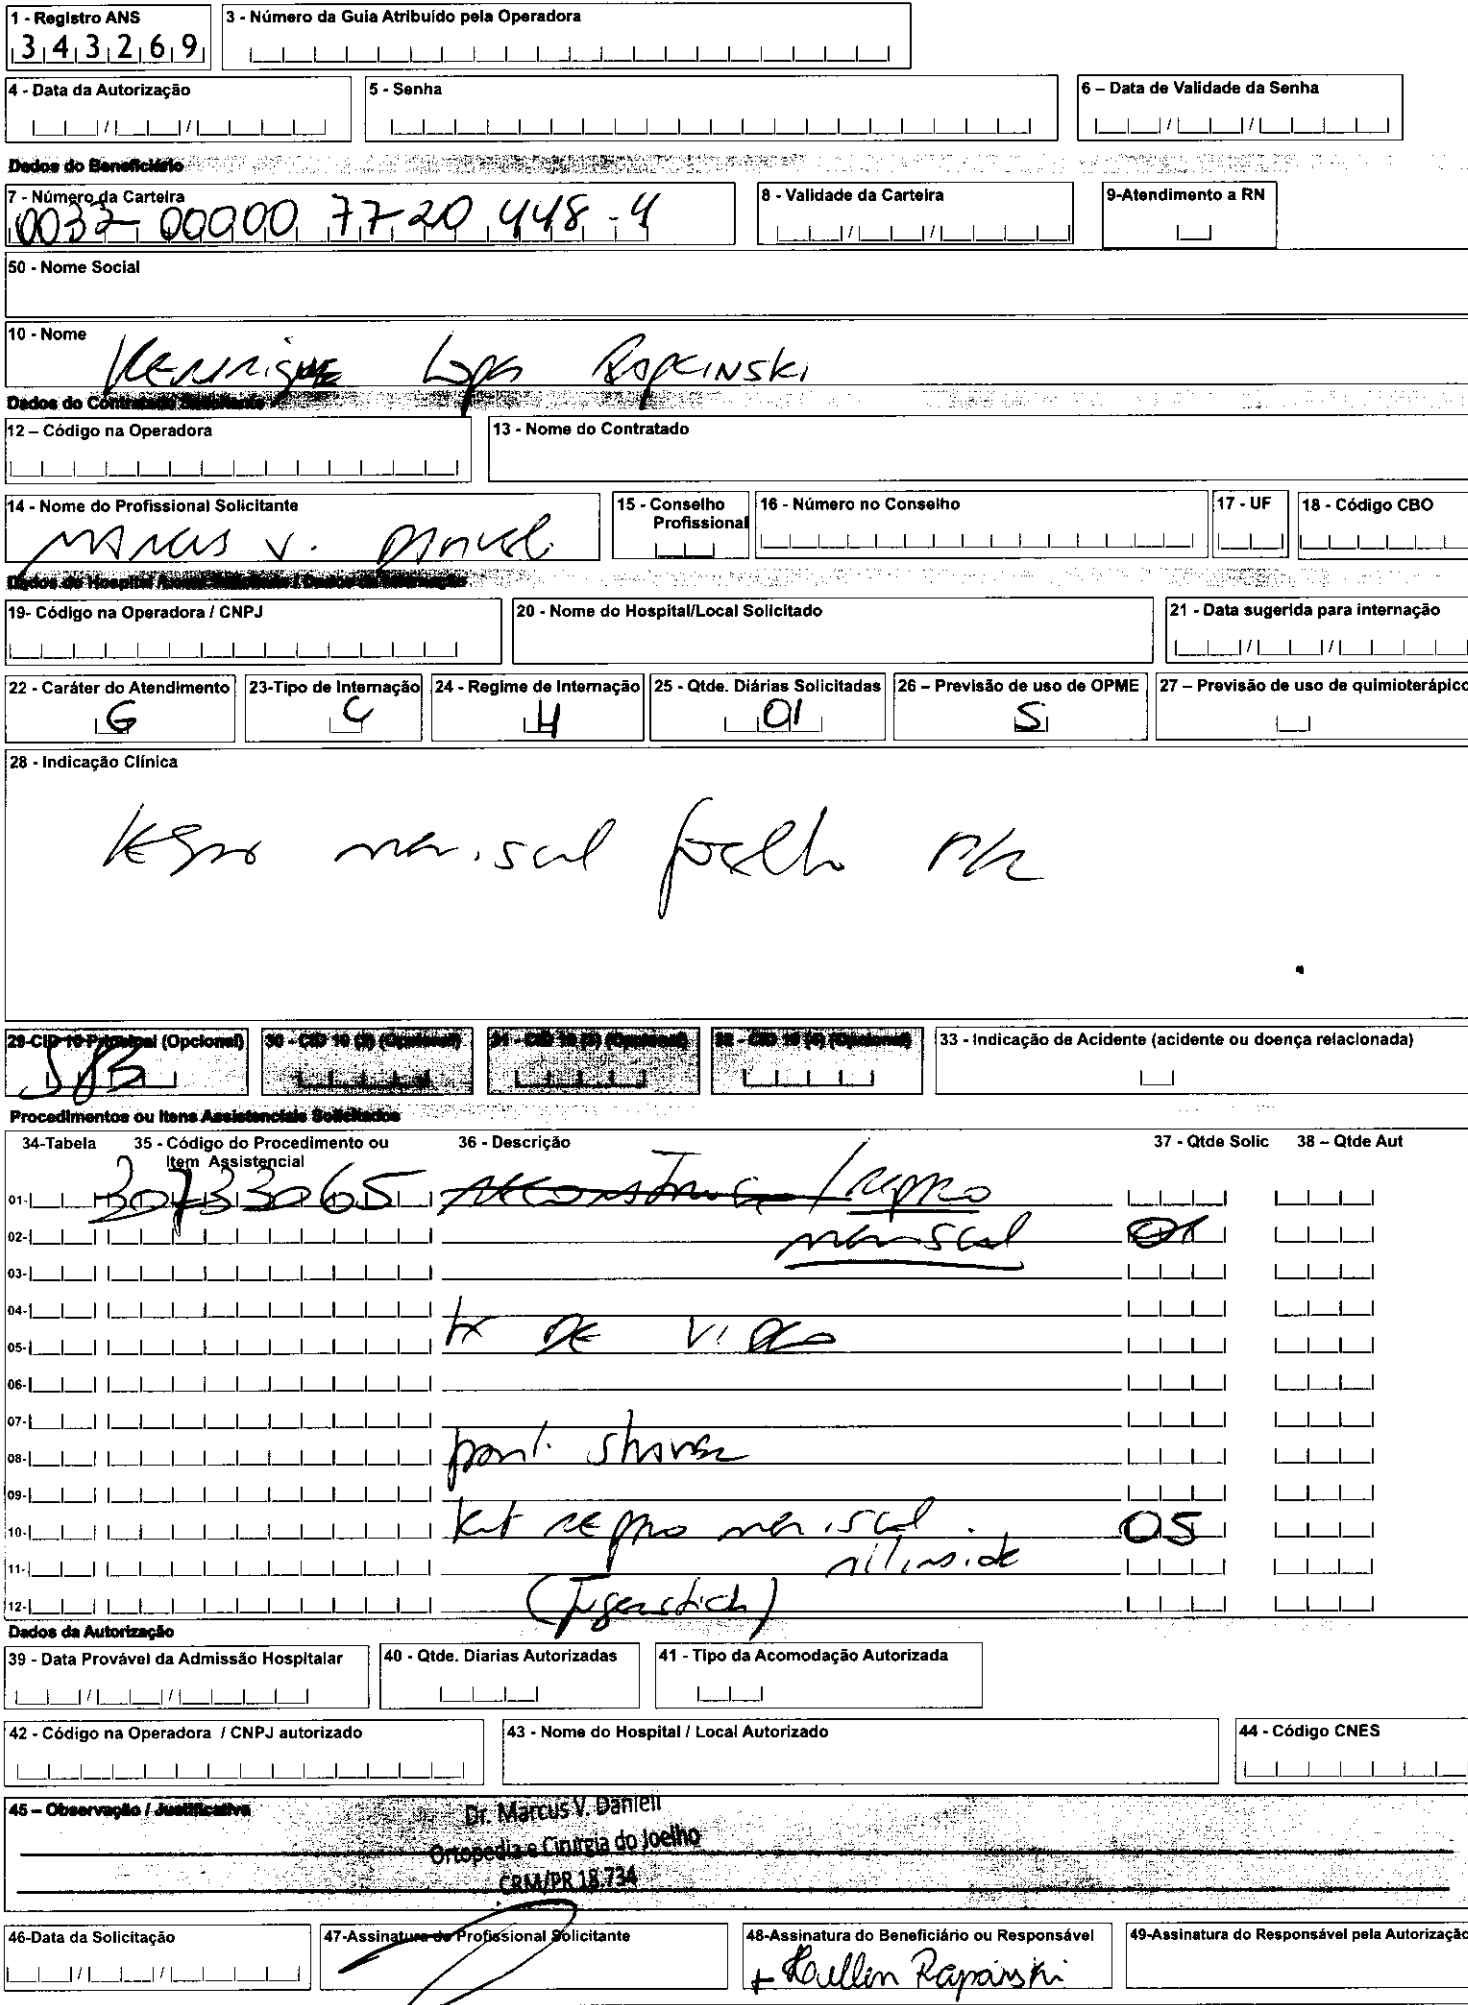 1 - Registro ANS
3 4 3 2 6 9
3 - Número da Guia Atribuído pela Operadora
4 - Data da Autorização
5 - Senha
6 – Data de Validade da Senha
Dados do Beneficiário
7 - Número da Carteira
0037 00000 7720 448-4
8 - Validade da Carteira
9-Atendimento a RN
50 - Nome Social
10 - Nome
Henrique Lopes Rapcinski
Dados do Contratado Solicitante
12 – Código na Operadora
13 - Nome do Contratado
14 - Nome do Profissional Solicitante
Marcus V. Danieli
15 - Conselho Profissional
16 - Número no Conselho
17 - UF
18 - Código CBO
Dados do Hospital /Local Solicitado / Dados da Internação
19- Código na Operadora / CNPJ
20 - Nome do Hospital/Local Solicitado
21 - Data sugerida para internação
22 - Caráter do Atendimento
23-Tipo de Internação
C
24 - Regime de Internação
H
25 - Qtde. Diárias Solicitadas
01
26 – Previsão de uso de OPME
S
27 – Previsão de uso de quimioterápico
28 - Indicação Clínica
meniscal joelho
29-CID 10 Principal (Opcional)
30 - CID 10 (2) (Opcional)
31 - CID 10 (3) (Opcional)
32 - CID 10 (4) (Opcional)
33 - Indicação de Acidente (acidente ou doença relacionada)
Procedimentos ou Itens Assistenciais Solicitados
34-Tabela 35 - Código do Procedimento ou Item Assistencial 36 - Descrição 37 - Qtde Solic 38 – Qtde Aut
01- 30733065 /reparo
02- meniscal 01
03-
04-
05- tx DE VIDEO
06-
07-
08- shaver
09-
10- Kit reparo meniscal 05
11- all inside
12- (Tigerstich)
Dados da Autorização
39 - Data Provável da Admissão Hospitalar
40 - Qtde. Diarias Autorizadas
41 - Tipo da Acomodação Autorizada
42 - Código na Operadora / CNPJ autorizado
43 - Nome do Hospital / Local Autorizado
44 - Código CNES
45 – Observação / Justificativa
Dr. Marcus V. Danieli
Ortopedia e Cirurgia do Joelho
CRM/PR 18.734
46-Data da Solicitação
47-Assinatura do Profissional Solicitante
48-Assinatura do Beneficiário ou Responsável
49-Assinatura do Responsável pela Autorização